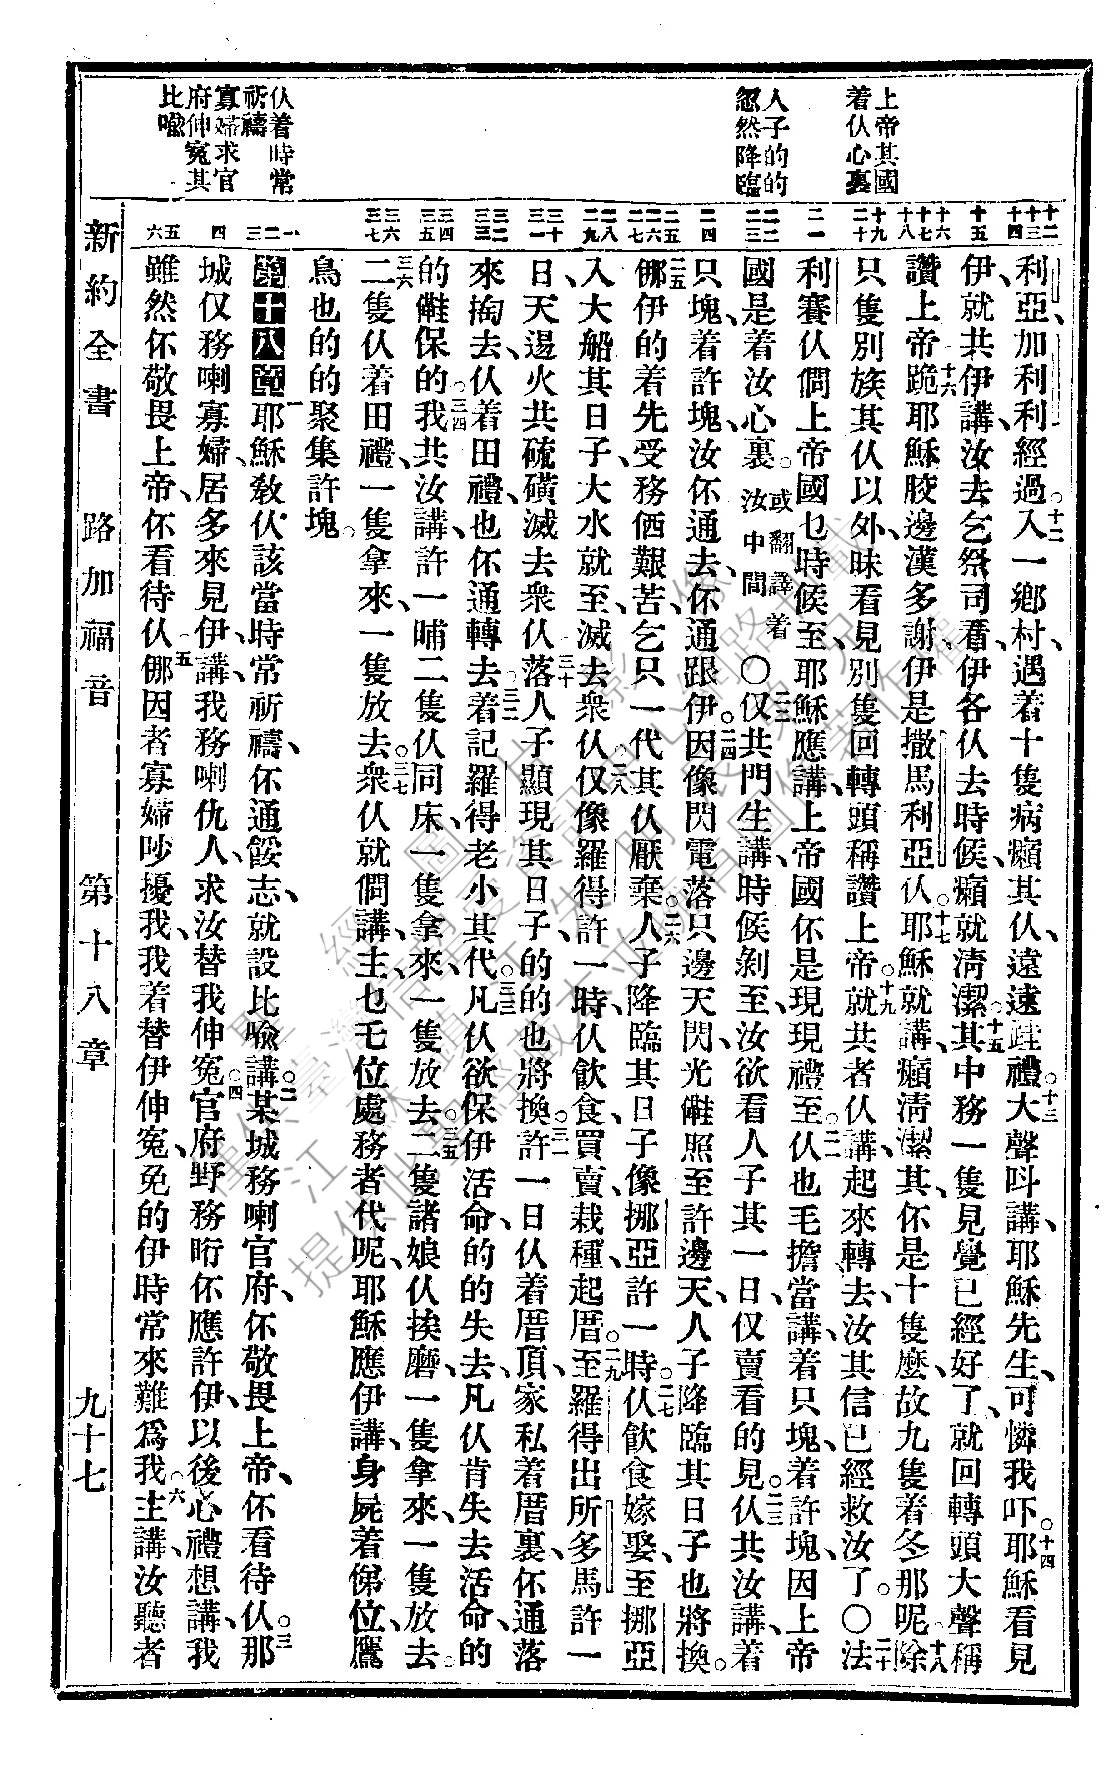 上帝其國
着仈心裏
人子的的
忽然降臨
仈着時常
祈禱
寡婦求官
府伸冤其
比喩
十二
十三
十四
十五
十六
十七
十八
十九
二十
二一
二二
二三
二四
二五
二六
二七
二八
二九
三十
三一
三二
三三
三四
三五
三六
三七
一
二
三
四
五
六
利亞、加利利經過。十二入一鄉村、遇着十隻病癩其仈、遠遠跍禮。十三大聲呌講、耶穌先生、可憐我吓。十四耶穌看見
伊、就共伊講、汝去乞祭司看、伊各仈去時候、癩就淸潔。十五其中務一隻見覺已經好了、就回轉頭大聲稱
讚上帝、十六跪耶穌骹邊漢多謝、伊是撒馬利亞仈。十七耶穌就講、癩淸潔其伓是十隻麽、故九隻着冬那呢。十八除
只隻別族其仈以外、昧看見別隻回轉頭稱讚上帝。十九就共者仈講、起來轉去、汝其信已經救汝了。〇二十法
利賽仈問上帝國乜時候至、耶穌應講、上帝國伓是現現禮至。二一仈也毛擔當講、着只塊、着許塊、因上帝
國是着汝心裏。或翻譯着汝中間〇二二仅共門生講、時候剝至、汝欲看人子其一日、仅賣看的見。二三仈共汝講、着
只塊、着許塊、汝伓通去、伓通跟伊。二四因像閃電落只邊天、閃光㒓照至許邊天、人子降臨其日子也將換。
二五㑚伊的着先受務価艱苦、乞只一代其仈厭棄。二六人子降臨其日子、像挪亞許一時。二七仈飲食嫁娶、至挪亞
入大船其日子、大水就至、滅去衆仈。二八仅像羅得許一時、仈飲食買賣、栽種起厝。二九至羅得出所多馬許一
日、天邊火共硫磺滅去衆仈。三十落人子顯現其日子、的的也將換。三一許一日仈着厝頂、家私着厝裏、伓通落
來掏去、仈着田禮、也伓通轉去。三二着記羅得老小其代。三三凡仈欲保伊活命、的的失去、凡仈肯失去活命、的
的㒓保的。三四我共汝講、許一晡二隻仈同床、一隻拿來、一隻放去。三五二隻諸娘仈挨磨、一隻拿來、一隻放去。
三六二隻仈着田禮、一隻拿來、一隻放去。三七衆仈就問講、主、乜乇位處務者代呢、耶穌應伊講、身屍着俤位、鷹
鳥也的的聚集許塊。
第十八章一耶穌敎仈該當時常祈禱、伓通餒志、就設比喩講。二某城務喇官府、伓敬畏上帝、伓看待仈。三那
城仅務喇寡婦、居多來見伊講、我務喇仇人、求汝替我伸冤。四官府野務䀪伓應許伊、以後心禮想講、我
雖然伓敬畏上帝、伓看待仈。五㑚因者寡婦吵擾我、我着替伊伸冤、免的伊時常來難爲我。六主講、汝聽者
新約全書　路加福音　第十八章　九十七